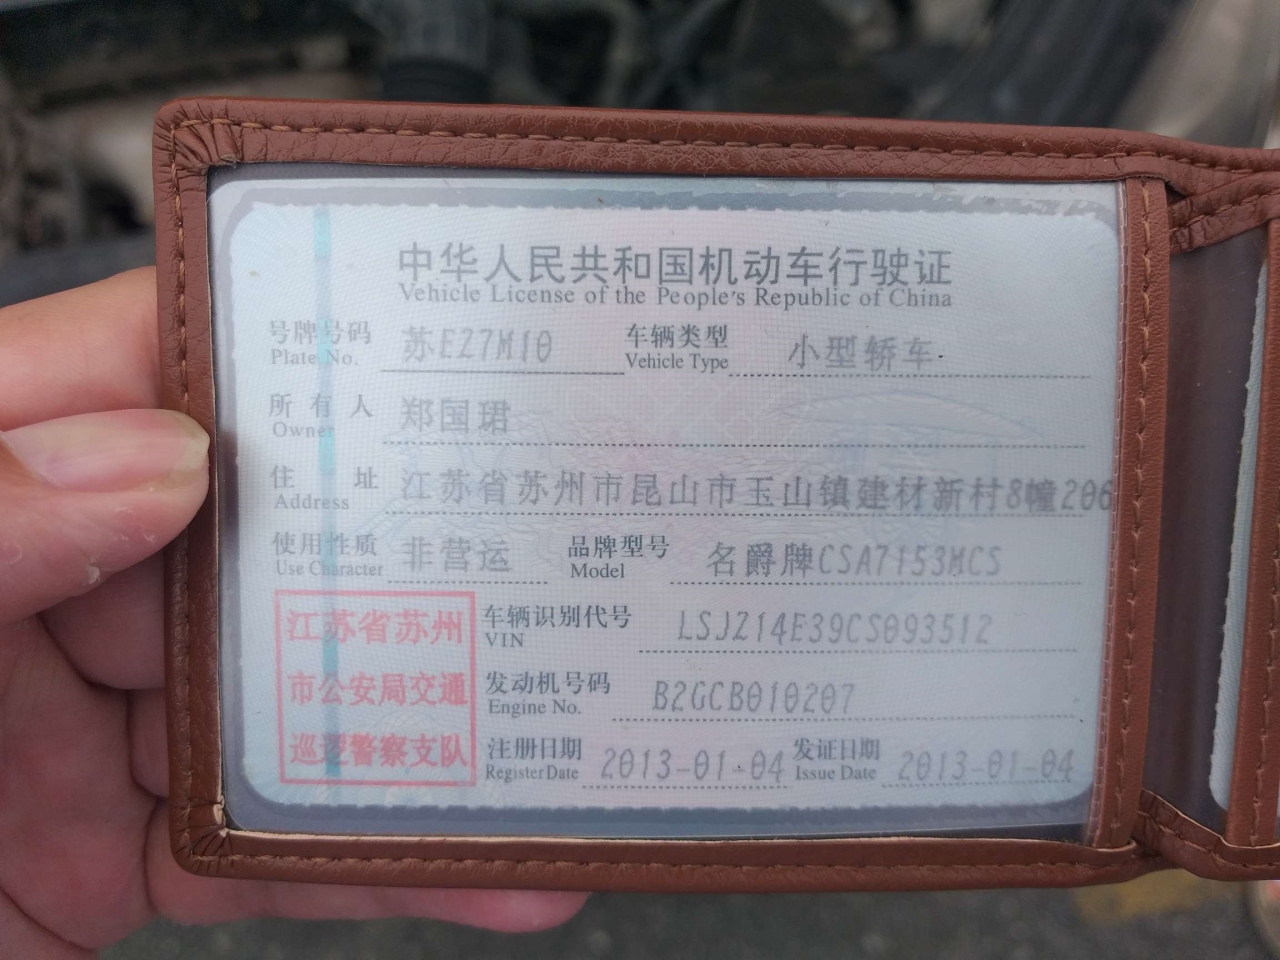 中华人民共和国机动车行驶证
Vehicle License of the People's Republic of China
号牌号码 苏EZ7M10 车辆类型 小型轿车
Plate No. Vehicle Type
所有人 郑国珺
Owner
住址 江苏省苏州市昆山市玉山镇建材新村8幢206
Address
使用性质 非营运 品牌型号 名爵牌CSA7153MCS
Use Character Model
江苏省苏州
市公安局交通
巡逻警察支队
车辆识别代号 LSJZ14E39CS093512
VIN
发动机号码 B2GCB010207
Engine No.
注册日期 2013-01-04 发证日期 2013-01-04
Register Date Issue Date